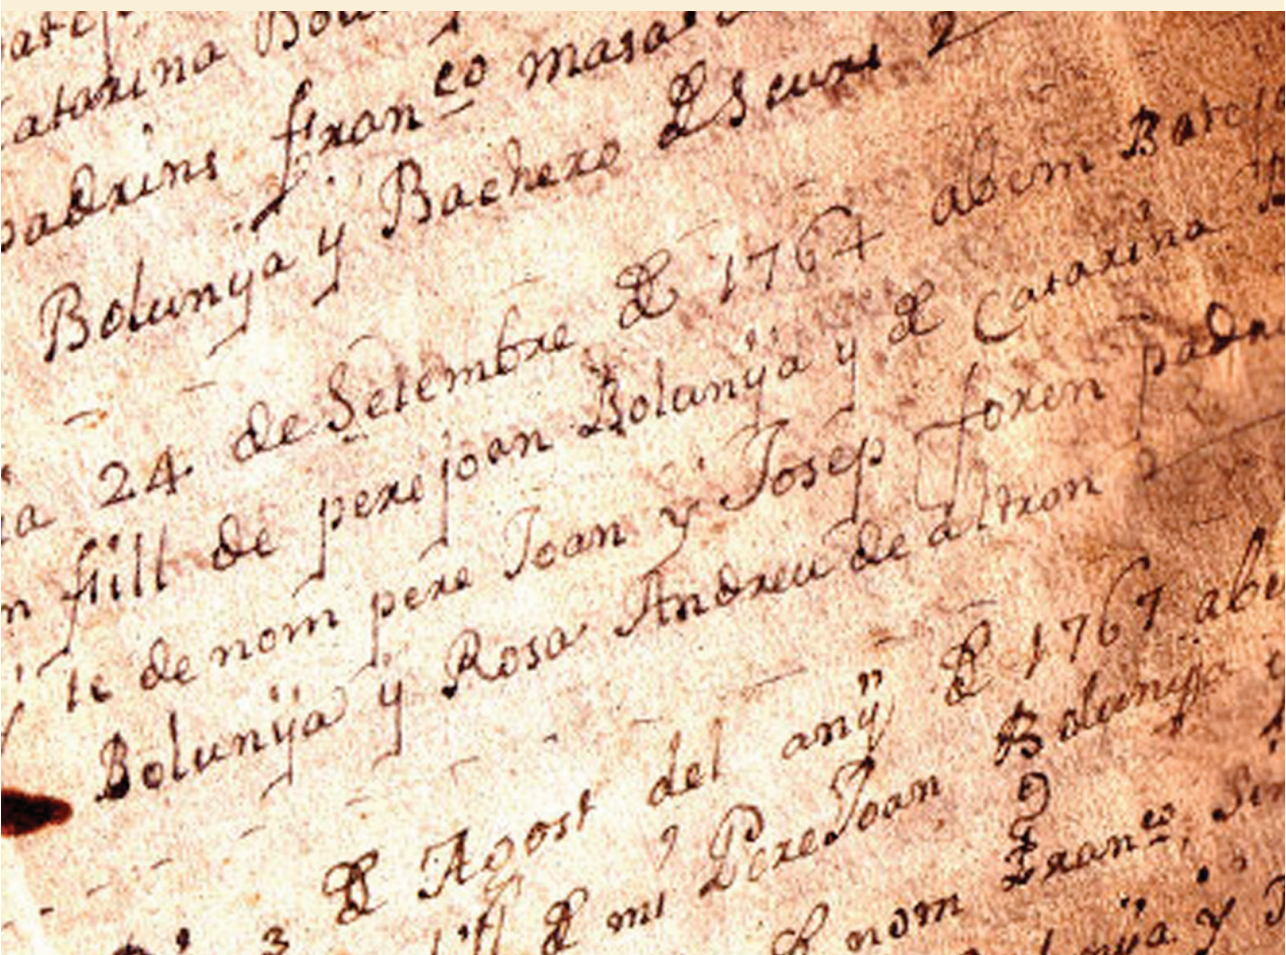 Catarina
padrins Fran^co
Bolunÿa y Bachero de Scuri
24 de Setembre de 1764 abem
fill de pere joan Bolunÿa y de Catarina
te de nom pere Joan y Josep foren
Bolunÿa y Rosa Andreu de altron
3 de Agost del anÿ de 1767
de mi Pere Joan Bolunÿa
nom Fran^co
y